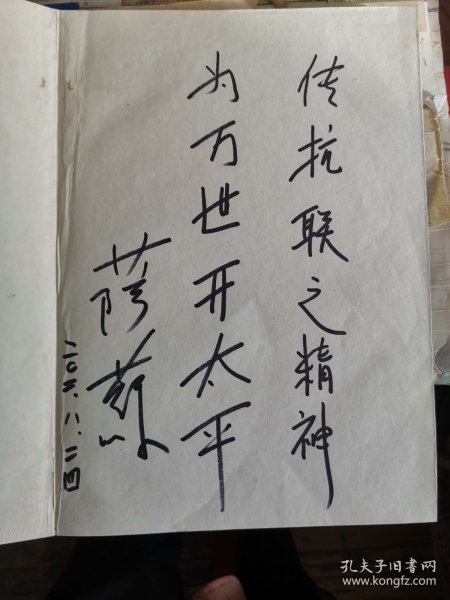 传抗联之精神
为万世开太平
萨苏
八.二四
孔夫子旧书网
www.kongfz.com